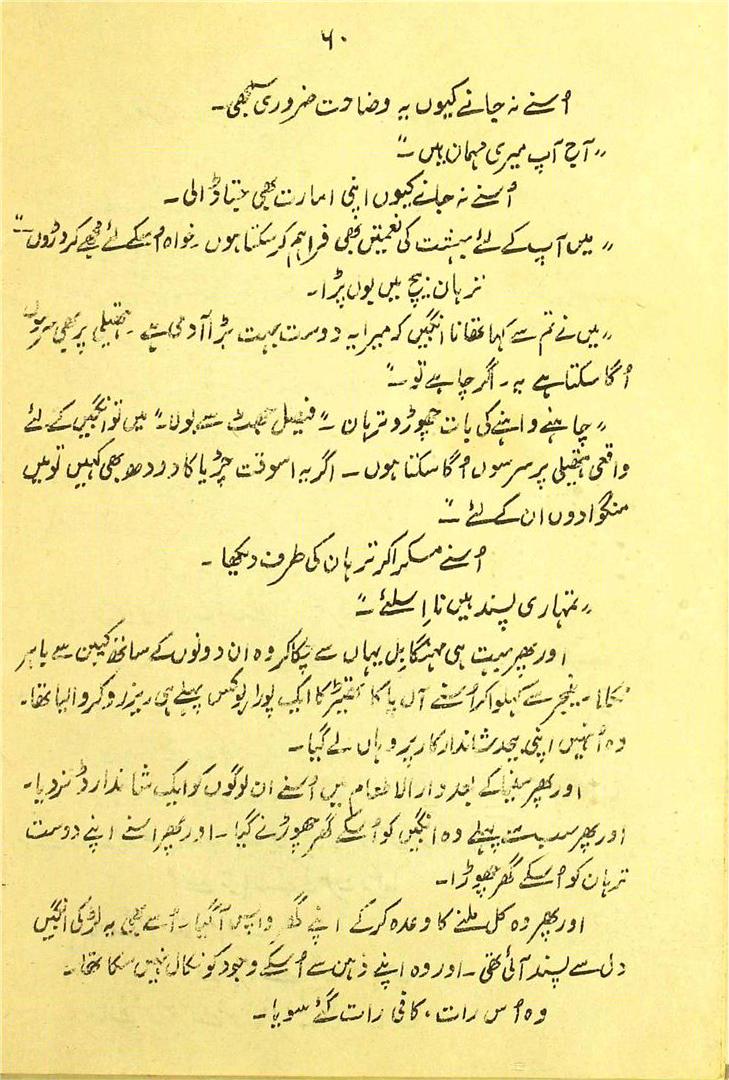 ۶۰
اُسنے نہ جانے کیوں یہ وضاحت ضروری سمجھی۔
”آج آپ میری مہمان ہیں۔“
اُسنے نہ جانے کیوں اپنی امارت بھی جتا ڈالی۔
”میں آپ کے لئے بہشت کی نعمتیں بھی فراہم کرسکتا ہوں۔ خواہ اُسکے لئے مجھے کروڑوں۔“
نرہان بیچ میں بول پڑا۔
”میں نے تم سے کہا تھا نا انگیں کہ میرا یہ دوست بہت بڑا آدمی ہے۔ ہتھیلی پر بھی سرسوں
اُگا سکتا ہے یہ۔ اگر چاہے تو۔“
”چاہنے واہنے کی بات چھوڑو نرہان۔“ فیصل جھٹ سے بولا۔ ”میں تو انگیں کے لئے
واقعی ہتھیلی پر سرسوں اُگا سکتا ہوں۔ اگر یہ اسوقت چڑیا کا دودھ بھی کہیں تو میں
منگوا دوں ان کے لئے۔“
اُسنے مسکرا کر نرہان کی طرف دیکھا۔
”تمہاری پسند ہیں نا اِسلئے۔“
اور پھر بہت ہی مہنگا بل یہاں سے چکا کر وہ ان دونوں کے ساتھ کیبن سے باہر
نکلا۔ منیجر سے کہلوا کر اُسنے آس پاس کا تھیٹر کا ایک پورا بوکس پہلے ہی ریزرو کروا لیا تھا۔
وہ اُنہیں اپنی بیحد شاندار کار پر وہاں لے گیا۔
اور پھر سنیما کے بعد دارالطعام میں اُسنے ان لوگوں کو ایک شاندار ڈنر دیا۔
اور پھر سب سے پہلے وہ انگیں کو اُسکے گھر چھوڑنے گیا۔ اور پھر اسنے اپنے دوست
نرہان کو اُسکے گھر چھوڑا۔
اور پھر وہ کل ملنے کا وعدہ کرکے اپنے گھر واپس آگیا۔ اُسے بھی یہ لڑکی انگیں
دل سے پسند آئی تھی۔ اور وہ اپنے ذہن سے اُسکے وجود کو نکال نہیں سکا تھا۔
وہ اُس رات، کافی رات گئے سویا۔